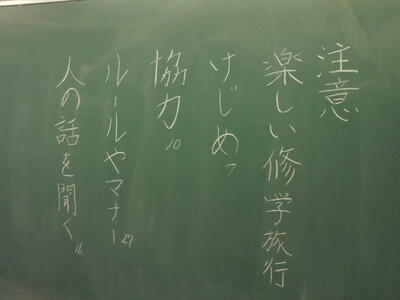 注意
楽しい修学旅行
けじめ7
協力10
ルールやマナー27
人の話を聞く